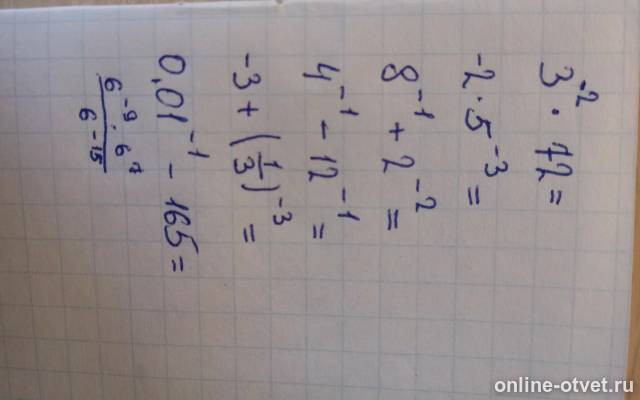 3⁻² · 72 =
-2 · 5⁻³ =
8⁻¹ + 2⁻² =
4⁻¹ - 12⁻¹ =
-3 + (1/3)⁻³ =
0,01⁻¹ - 165 =
6⁻⁹ · 6⁷ / 6⁻¹⁵
online-otvet.ru